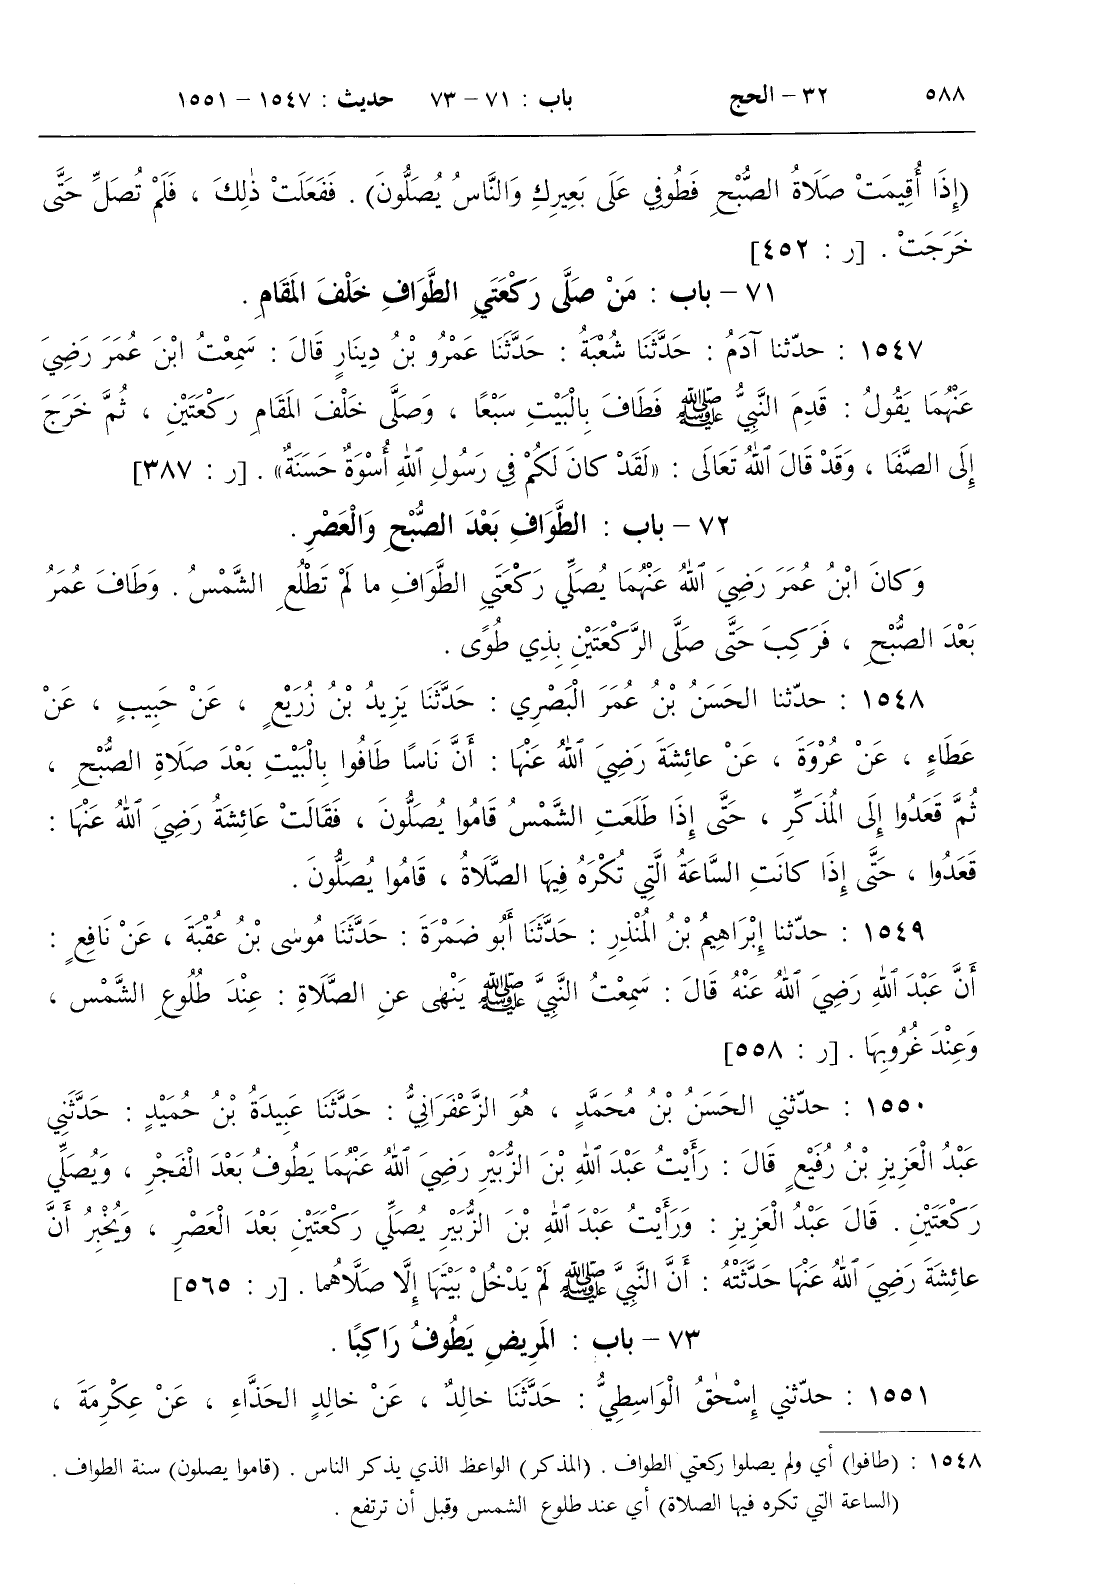 ٥٨٨ ٣٢ – الحج باب : ٧١ – ٧٣ حديث : ١٥٤٧ – ١٥٥١
(إِذَا أُقِيمَتْ صَلَاةُ الصُّبْحِ فَطُوفِي عَلَى بَعِيرِكِ وَالنَّاسُ يُصَلُّونَ) . فَفَعَلَتْ ذٰلِكَ ، فَلَمْ تُصَلِّ حَتَّى
خَرَجَتْ . [ر : ٤٥٢]
٧١ – باب : مَنْ صَلَّى رَكْعَتَيِ الطَّوَافِ خَلْفَ المَقَامِ .
١٥٤٧ : حدّثنا آدَمُ : حَدَّثَنَا شُعْبَةُ : حَدَّثَنَا عَمْرُو بْنُ دِينَارٍ قَالَ : سَمِعْتُ ابْنَ عُمَرَ رَضِيَ
عَنْهُمَا يَقُولُ : قَدِمَ النَّبِيُّ ﷺ فَطَافَ بِالْبَيْتِ سَبْعًا ، وَصَلَّى خَلْفَ المَقَامِ رَكْعَتَيْنِ ، ثُمَّ خَرَجَ
إِلَى الصَّفَا ، وَقَدْ قَالَ ٱللهُ تَعَالَى : «لَقَدْ كانَ لَكُمْ فِي رَسُولِ ٱللهِ أُسْوَةٌ حَسَنَةٌ» . [ر : ٣٨٧]
٧٢ – باب : الطَّوَافِ بَعْدَ الصُّبْحِ وَالْعَصْرِ .
وَكانَ ابْنُ عُمَرَ رَضِيَ ٱللهُ عَنْهُمَا يُصَلِّي رَكْعَتَيِ الطَّوَافِ ما لَمْ تَطْلُعِ الشَّمْسُ . وَطَافَ عُمَرُ
بَعْدَ الصُّبْحِ ، فَرَكِبَ حَتَّى صَلَّى الرَّكْعَتَيْنِ بِذِي طُوًى .
١٥٤٨ : حدّثنا الحَسَنُ بْنُ عُمَرَ الْبَصْرِي : حَدَّثَنَا يَزِيدُ بْنُ زُرَيْعٍ ، عَنْ حَبِيبٍ ، عَنْ
عَطَاءٍ ، عَنْ عُرْوَةَ ، عَنْ عائِشَةَ رَضِيَ ٱللهُ عَنْهَا : أَنَّ نَاسًا طَافُوا بِالْبَيْتِ بَعْدَ صَلَاةِ الصُّبْحِ ،
ثُمَّ قَعَدُوا إِلَى المُذَكِّرِ ، حَتَّى إِذَا طَلَعَتِ الشَّمْسُ قَامُوا يُصَلُّونَ ، فَقَالَتْ عائِشَةُ رَضِيَ ٱللهُ عَنْهَا :
قَعَدُوا ، حَتَّى إِذَا كانَتِ السَّاعَةُ الَّتِي تُكْرَهُ فِيهَا الصَّلَاةُ ، قَامُوا يُصَلُّونَ .
١٥٤٩ : حدّثنا إِبْرَاهِيمُ بْنُ المُنْذِرِ : حَدَّثَنَا أَبُو ضَمْرَةَ : حَدَّثَنَا مُوسٰى بْنُ عُقْبَةَ ، عَنْ نَافِعٍ :
أَنَّ عَبْدَ ٱللهِ رَضِيَ ٱللهُ عَنْهُ قَالَ : سَمِعْتُ النَّبِيَّ ﷺ يَنْهٰى عنِ الصَّلَاةِ : عِنْدَ طُلُوعِ الشَّمْسِ ،
وَعِنْدَ غُرُوبِهَا . [ر : ٥٥٨]
١٥٥٠ : حدّثني الحَسَنُ بْنُ مُحَمَّدٍ ، هُوَ الزَّعْفَرَانِيُّ : حَدَّثَنَا عَبِيدَةُ بْنُ حُمَيْدٍ : حَدَّثَنِي
عَبْدُ الْعَزِيزِ بْنُ رُفَيْعٍ قَالَ : رَأَيْتُ عَبْدَ ٱللهِ بْنَ الزُّبَيْرِ رَضِيَ ٱللهُ عَنْهُمَا يَطُوفُ بَعْدَ الْفَجْرِ ، وَيُصَلِّي
رَكْعَتَيْنِ . قَالَ عَبْدُ الْعَزِيزِ : وَرَأَيْتُ عَبْدَ ٱللهِ بْنَ الزُّبَيْرِ يُصَلِّي رَكْعَتَيْنِ بَعْدَ الْعَصْرِ ، وَيُخْبِرُ أَنَّ
عائِشَةَ رَضِيَ ٱللهُ عَنْهَا حَدَّثَتْهُ : أَنَّ النَّبِيَّ ﷺ لَمْ يَدْخُلْ بَيْتَهَا إِلَّا صَلَّاهُما . [ر : ٥٦٥]
٧٣ – باب : المَرِيضِ يَطُوفُ رَاكِبًا .
١٥٥١ : حدّثني إِسْحٰقُ الْوَاسِطِيُّ : حَدَّثَنَا خالِدٌ ، عَنْ خالِدٍ الحَذَّاءِ ، عَنْ عِكْرِمَةَ ،
١٥٤٨ : (طافوا) أي ولم يصلوا ركعتي الطواف . (المذكر) الواعظ الذي يذكر الناس . (قاموا يصلون) سنة الطواف .
(الساعة التي تكره فيها الصلاة) أي عند طلوع الشمس وقبل أن ترتفع .